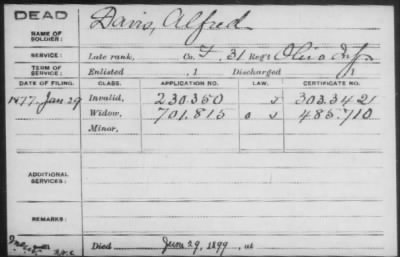 DEAD
NAME OF SOLDIER: Davis, Alfred
SERVICE: Late rank, Co. F, 31 Reg't Ohio Inf.
TERM OF SERVICE: Enlisted , 1 Discharged , 1
DATE OF FILING. CLASS. APPLICATION NO. LAW. CERTIFICATE NO.
1877, Jan 29 Invalid, 230350 303.342
Widow, 701.815 485.710
Minor,
ADDITIONAL SERVICES:
REMARKS:
Died June 29, 1899, at